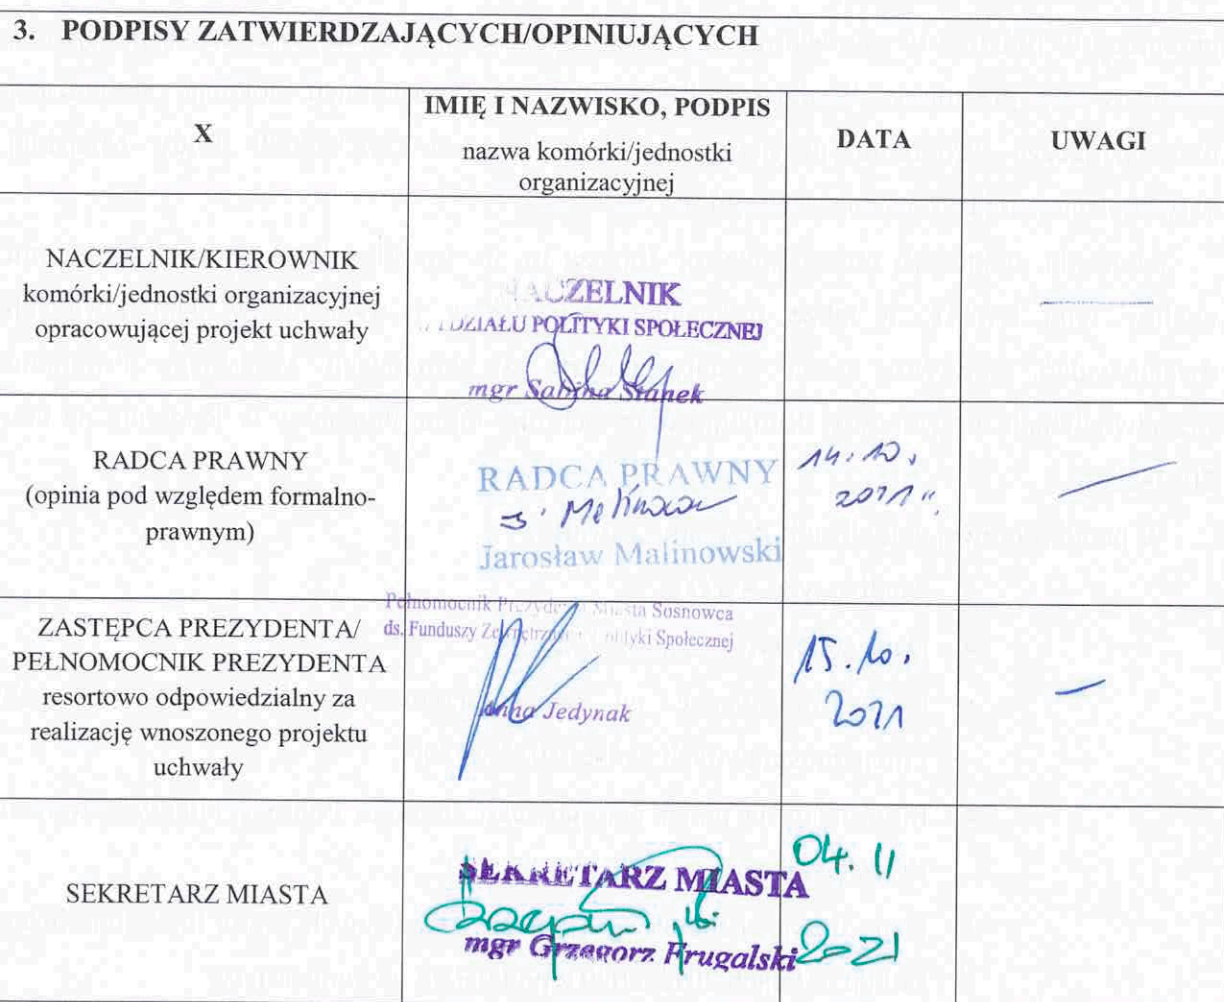 3. PODPISY ZATWIERDZAJĄCYCH/OPINIUJĄCYCH
X
IMIĘ I NAZWISKO, PODPIS
nazwa komórki/jednostki
organizacyjnej
DATA
UWAGI
NACZELNIK/KIEROWNIK
komórki/jednostki organizacyjnej
opracowującej projekt uchwały
NACZELNIK
WYDZIAŁU POLITYKI SPOŁECZNEJ
mgr Sabina Stanek
RADCA PRAWNY
(opinia pod względem formalno-
prawnym)
RADCA PRAWNY
Jarosław Malinowski
14.10.
2021
ZASTĘPCA PREZYDENTA/
PEŁNOMOCNIK PREZYDENTA
resortowo odpowiedzialny za
realizację wnoszonego projektu
uchwały
Pełnomocnik Prezydenta Miasta Sosnowca
ds. Funduszy Zewnętrznych i Polityki Społecznej
Anna Jedynak
15.10.
2021
SEKRETARZ MIASTA
SEKRETARZ MIASTA
mgr Grzegorz Frugalski
04.11
2021